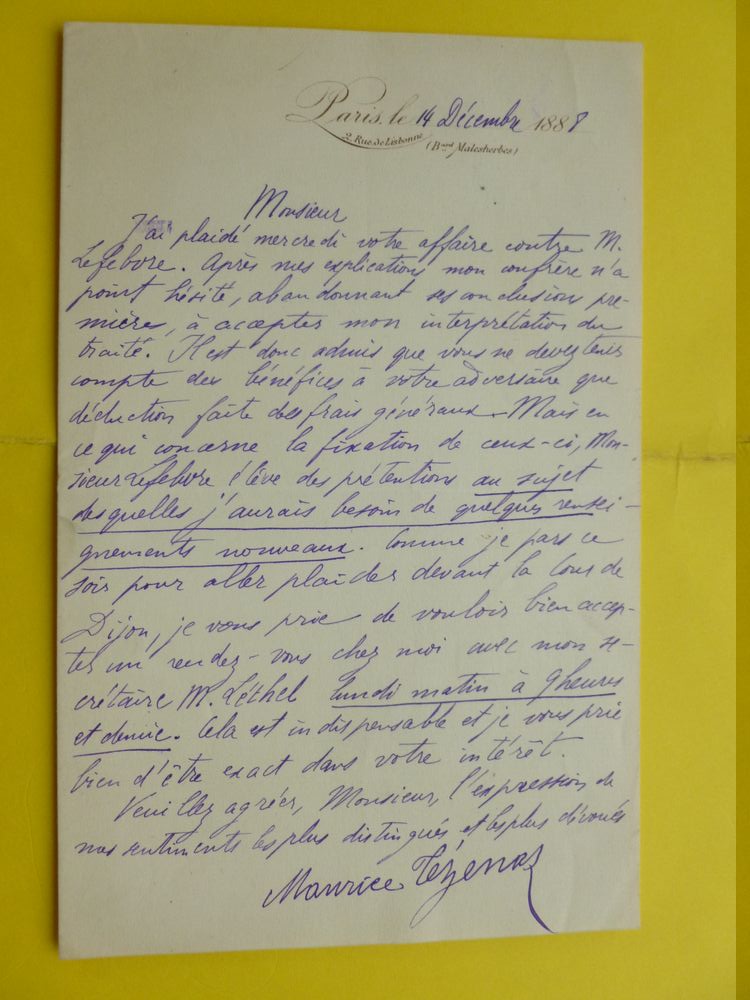 Paris, le 14 Décembre 1888
2, Rue de Lisbonne
(Bard Malesherbes)
Monsieur
J'ai plaidé mercredi votre affaire contre M.
Lefebvre. Après mes explications mon confrère n'a
point hésité, abandonnant ses conclusions pre-
mières, à accepter mon interprétation du
traité. Il est donc admis que vous ne devez tenir
compte des bénéfices à votre adversaire que
déduction faite des frais généraux. Mais en
ce qui concerne la fixation de ceux-ci, Mon-
sieur Lefebvre élève des prétentions au sujet
desquelles j'aurais besoin de quelques rensei-
gnements nouveaux. Comme je pars ce
soir pour aller plaider devant la Cour de
Dijon, je vous prie de vouloir bien accep-
ter un rendez-vous chez moi avec mon se-
crétaire M. Léthel lundi matin à 9 heures
et demie. Cela est indispensable et je vous prie
bien d'être exact dans votre intérêt.
Veuillez agréer, Monsieur, l'expression de
mes sentiments les plus distingués et les plus dévoués
Maurice Tézenas